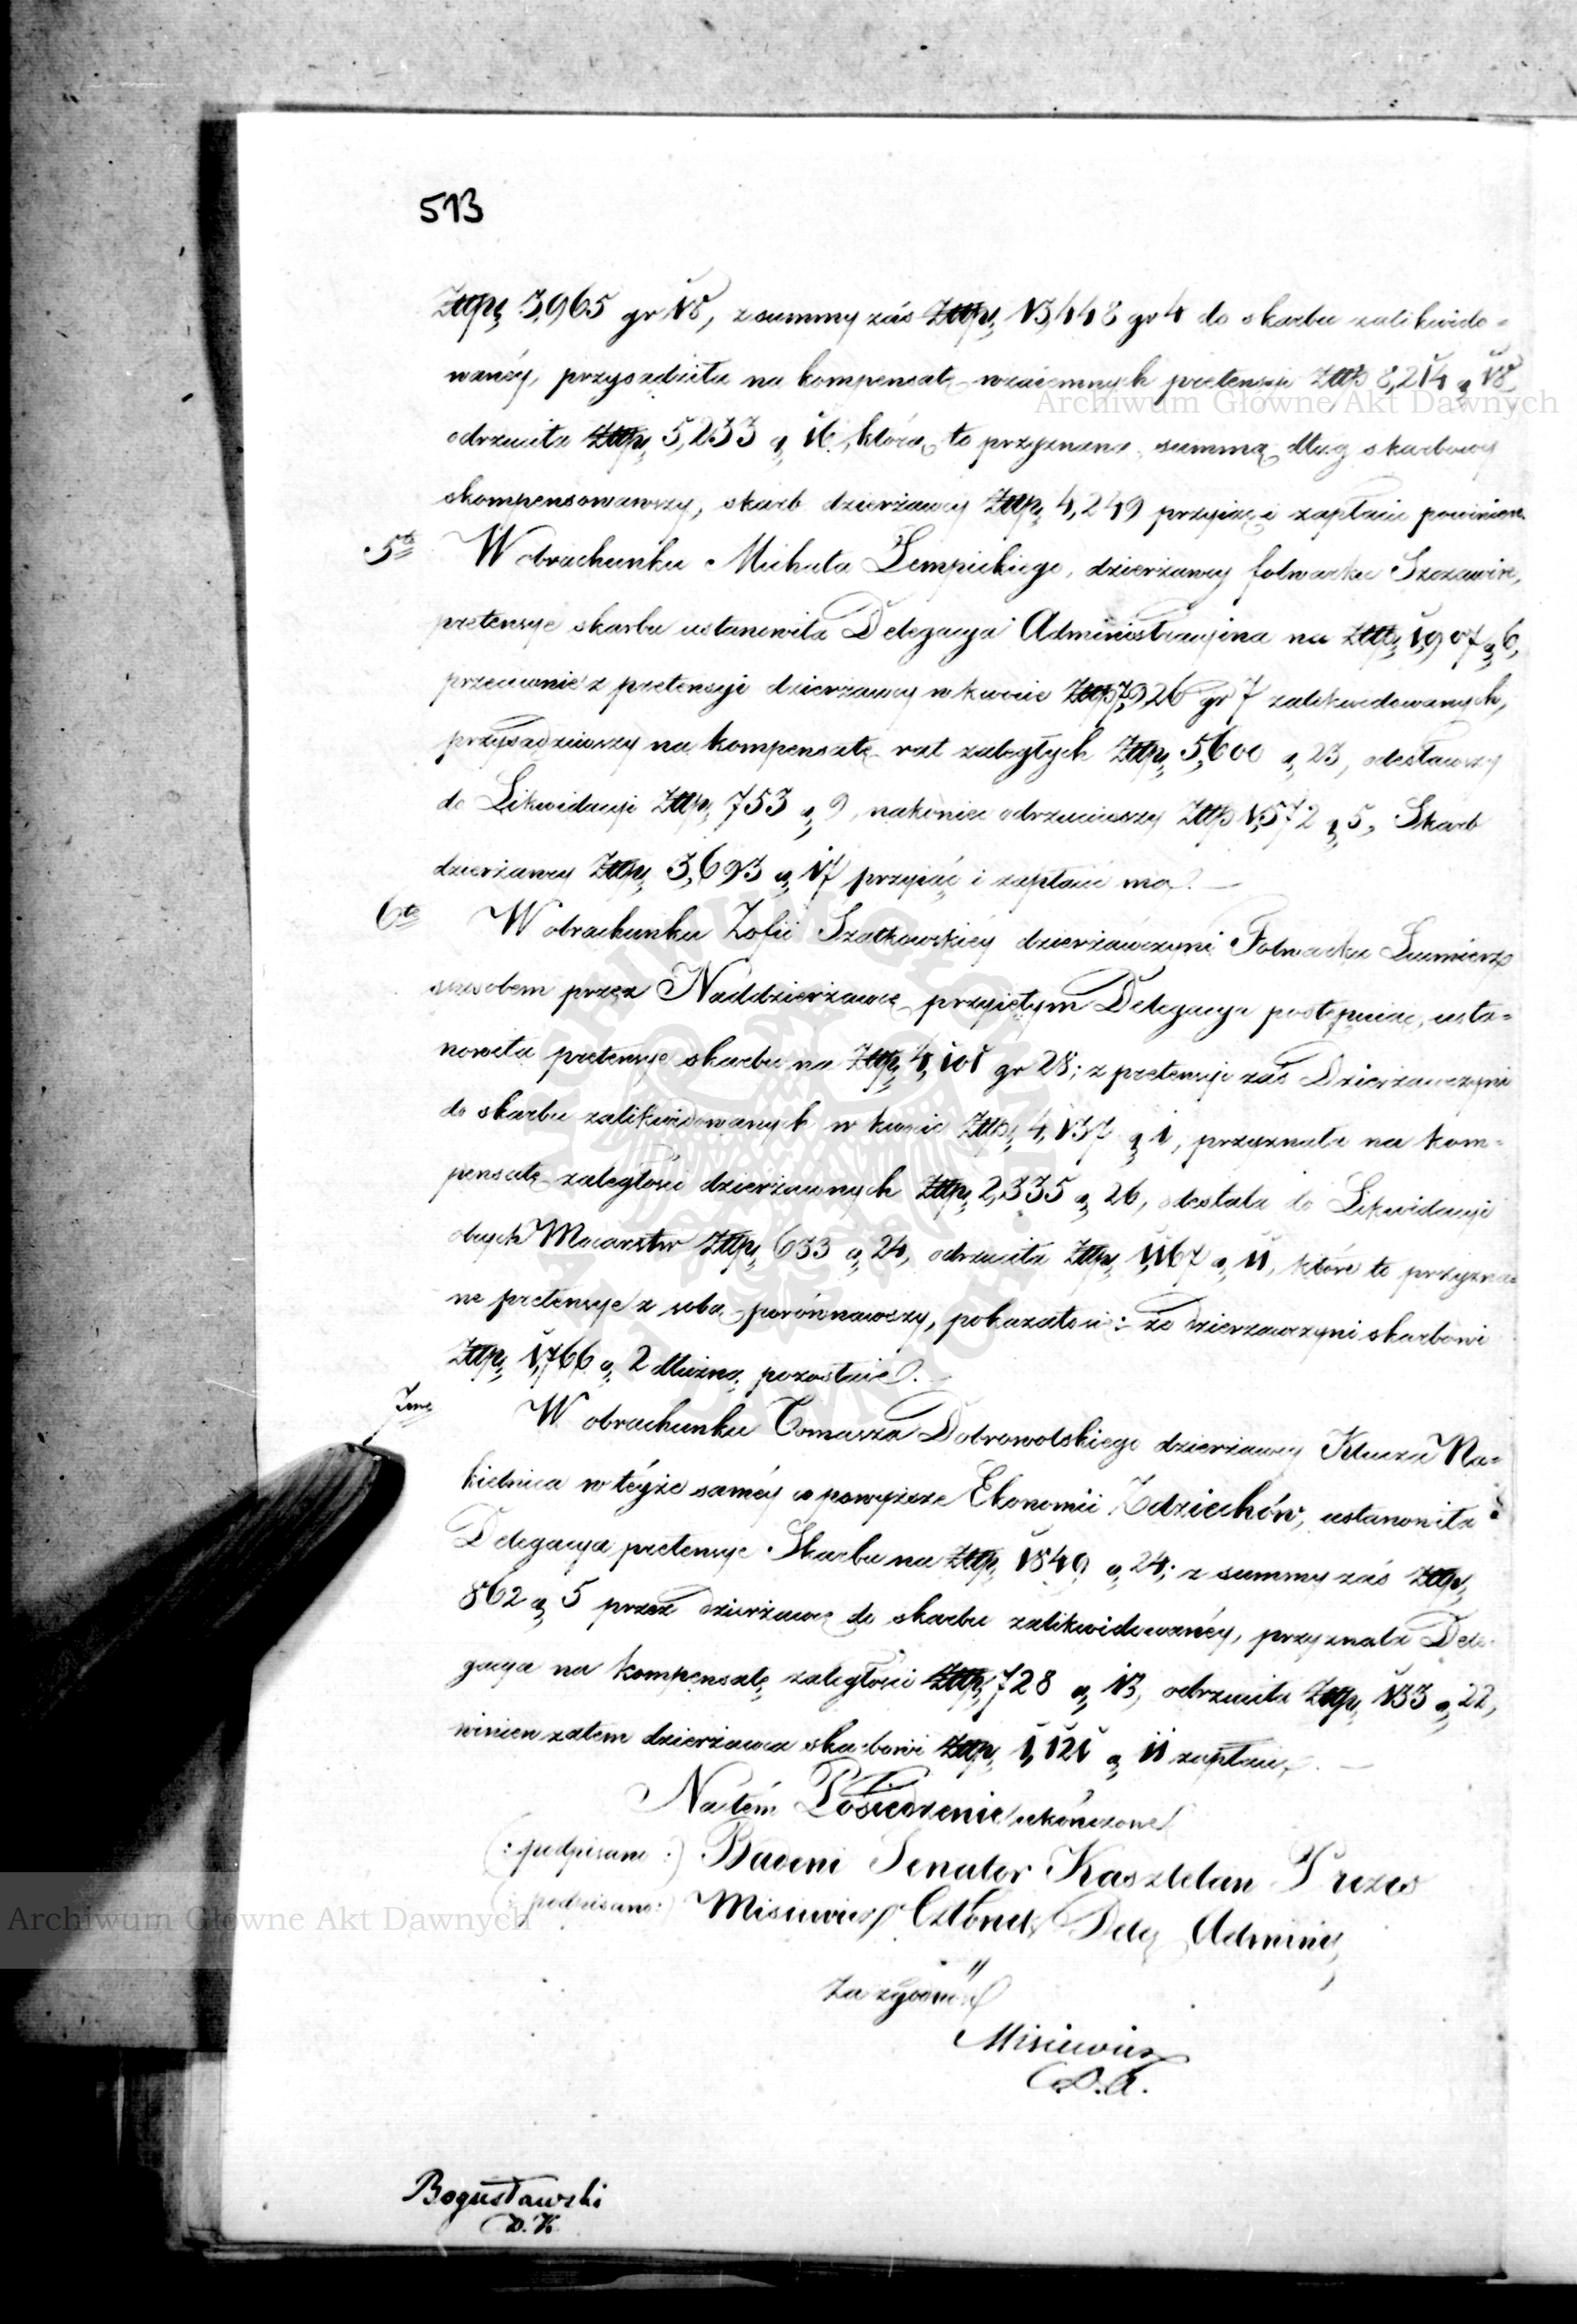 513
Złłp. 3,965 gr 18, z summy zaś Złłp. 13,448 gr 4 do skarbu zalikwido=
wanéy, przysądziła na kompensatę wzaiemnych pretensyi Złłp 8,214 g. 18,
odrzuciła Złłp. 5,233 g. 16, którą to przyznaną summą dług skarbowy
skompensowawszy, skarb dzierżawcy Złłp. 4,249 przyiąć i zapłacić powinien.
5te W obrachunku Michała Łempickiego, dzierżawcy folwarku Szczawin,
pretensye skarbu ustanowiła Delegacya Administracyina na Złłp. 1,907 g. 6,
przeciwnie z pretensyi dzierżawcy w kwocie Złłp. 7,926 gr 7 zalikwidowanych,
przysądziwszy na kompensatę rat zaległych Złłp. 5,600 g. 23, odesławszy
do Likwidacyi Złłp. 753 g. 9, nakoniec odrzuciwszy Złłp 1,572 g. 5, Skarb
dzierżawcy Złłp. 3,693 g. 17 przyiąć i zapłacić ma. —
6te W obrachunku Zofii Szatkowskiéy dzierżawczyni Folwarku Lumierz
sposobem przez Naddzierżawcę przyiętym Delegacya postępuiąc, usta=
nowiła pretensye skarbu na Złłp. 4,101 gr 28; z pretensyi zaś Dzierżawczyni
do skarbu zalikwidowanych w kwocie Złłp. 4,137 g. 1, przyznała na kom=
pensatę zaległości dzierżawnych Złłp. 2,335 g. 26, odesłała do Likwidacyi
obcych Mocarstw Złłp. 633 g. 24, odrzuciła Złłp. 1,167 g. 11, które to przyzna=
ne pretensye z sobą porównawszy, pokazało się: że dzierżawczyni skarbowi
Złłp. 1,766 g. 2 dłużną pozostaie. —
7me W obrachunku Tomasza Dobrowolskiego dzierżawcy Klucza Na=
kielnica w téyże saméy co powyższe Ekonomii Zdziechów, ustanowiła
Delegacya pretensye Skarbu na Złłp. 1849 g. 24; z summy zaś Złłp.
862 g. 5 przez dzierżawcę do skarbu zalikwidowanéy, przyznała Dele=
gacya na kompensatę zaległości Złłp. 728 g. 13, odrzuciła Złłp. 133 g. 22,
winien zatem dzierżawca skarbowi Złłp. 1,121 g. 11 zapłacić. —
Na tém Posiedzenie ukończone
(: podpisano :) Badeni Senator Kasztelan Prezes
(: podpisano :) Misiewicz Członek Deleg Adminis
Za zgodność
Misiewicz
C. D. A.
Bogusławski
D. K.
Archiwum Główne Akt Dawnych
Archiwum Główne Akt Dawnych